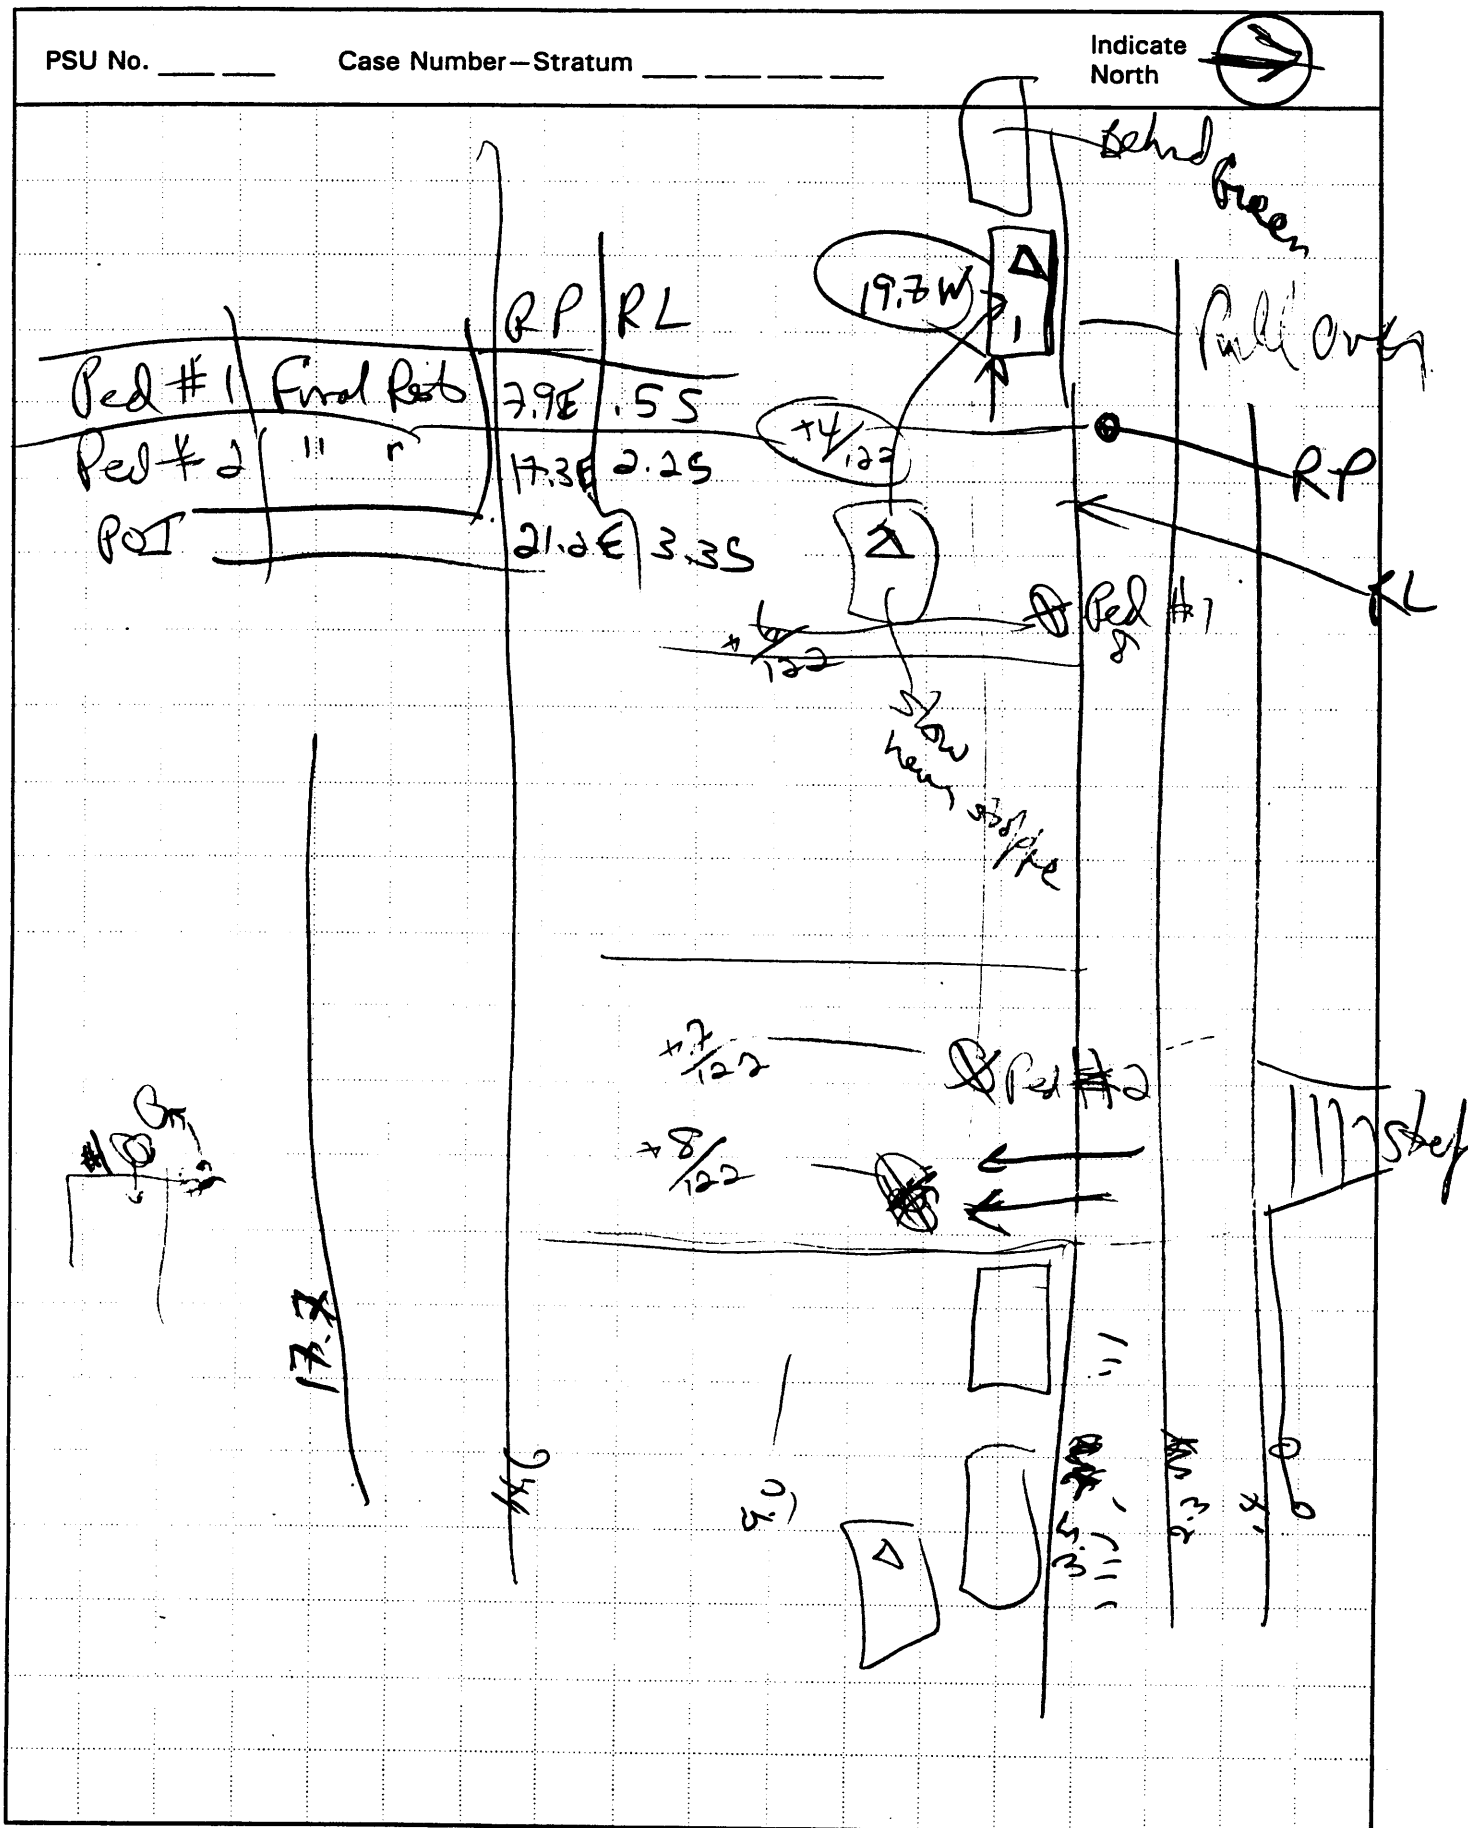 PSU No. ___ ___ Case Number—Stratum ___ ___ ___ ___ Indicate North
Behind
Green
19.7 W
1
Pull over
RP RL
Ped #1 Final Rest 7.9E .5S
Ped #2 " " 17.3E 2.2S
POI 21.2E 3.3S
+4/122
RP
RL
Ped #1
+6/122
slow
+7/122
Ped #2
+8/122
step
#1
17.7
9.0
2.3
.4